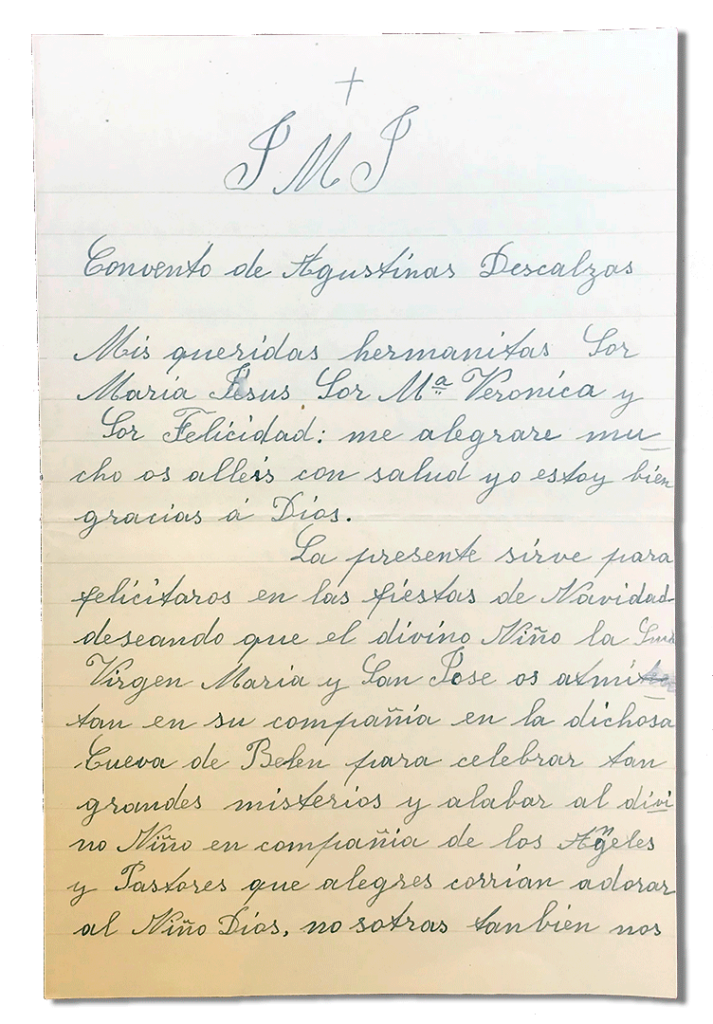 +
J M J
Convento de Agustinas Descalzas
Mis queridas hermanitas Sor
Maria Jesus Sor Mª Veronica y
Sor Felicidad: me alegrare mu-
cho os alleis con salud yo estoy bien
gracias á Dios.
La presente sirve para
felicitaros en las fiestas de Navidad
deseando que el divino Niño la
Virgen Maria y San Jose os atmi-
tan en su compañia en la dichosa
Cueva de Belen para celebrar tan
grandes misterios y alabar al divi
no Niño en compañia de los Angeles
y Pastores que alegres corrian adorar
al Niño Dios, nosotras tanbien nos